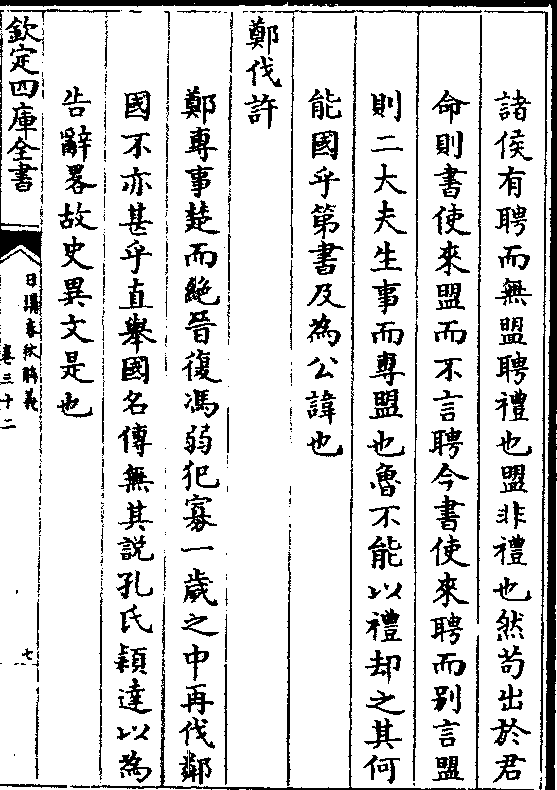 諸侯有聘而無盟聘禮也盟非禮也然苟出於君
命則書使來盟而不言聘今書使來聘而别言盟
則二大夫生事而專盟也魯不能以禮却之其何
能國乎第書及為公諱也
鄭伐許
鄭專事楚而絶晉復馮弱犯寡一歲之中再伐鄰
國不亦甚乎直舉國名傳無其説孔氏穎達以為
告辭畧故史異文是也
欽定四庫全書
日講春秋解義
卷三十二
七